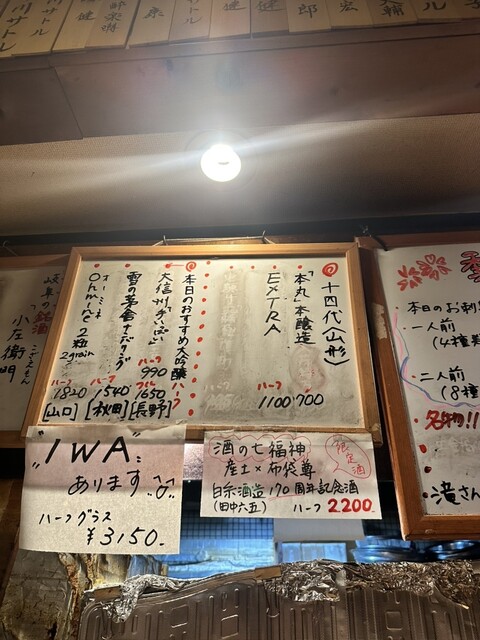 川サトル
康
サトル
健
健
郎
宏
ル
十四代〈山形〉
「本丸」本醸造
700
EXTRA
ハーフ
1100
本日のおすすめ大吟醸
大信州「手いっぱい」
ハーフ
990
フル
1650
[長野]
ハーフ
1540
[秋田]
オーミネ
Ohmine 2粒
2grain
ハーフ
1820
[山口]
岐阜の銘酒
小左衛門
こざえもん
本日のお刺
・一人前
(4種
・二人前
(8種
・名物!!
・滝さん
"IWA"
あります
ハーフグラス
¥3150.
酒の七福神
限定酒
産土×布袋尊
白糸酒造170周年記念酒
(田中六五)
ハーフ 2200